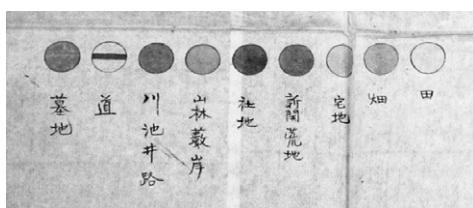 田
畑
宅地
新開荒地
社地
山林藪岸
川池井路
道
墓地